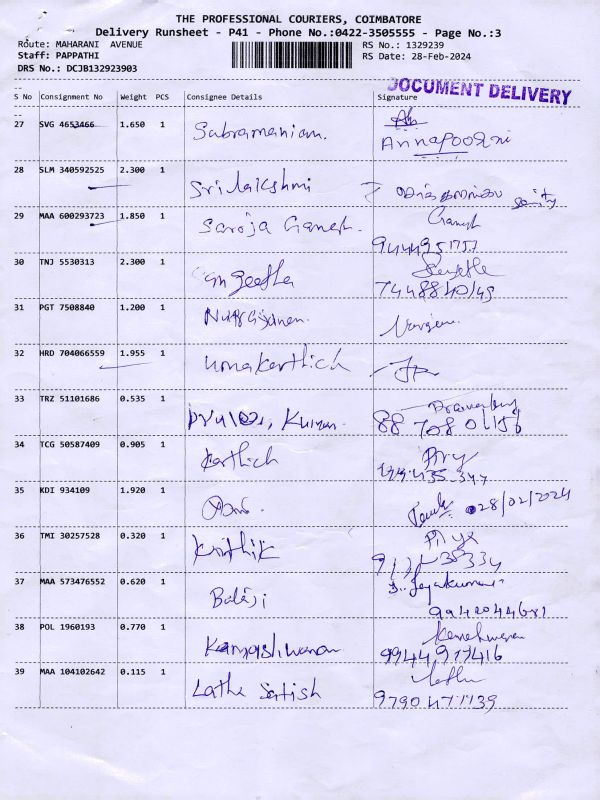 THE PROFESSIONAL COURIERS, COIMBATORE
Delivery Runsheet - P41 - Phone No.:0422-3505555 - Page No.:3
Route: MAHARANI AVENUE RS No.: 1329239
Staff: PAPPATHI RS Date: 28-Feb-2024
DRS No.: DCJB132923903
DOCUMENT DELIVERY
S No Consignment No Weight PCS Consignee Details Signature
27 SVG 4653466 1.650 1 Subramaniam. Annapoorni
28 SLM 340592525 2.300 1 Sri lakshmi
29 MAA 600293723 1.850 1 Saroja Ganesh. Ganesh
30 TNJ 5530313 2.300 1 Sangeetha
7448840149
31 PGT 7508840 1.200 1
32 HRD 704066559 1.955 1 Umakarthick
33 TRZ 51101686 0.535 1 Kumar.
34 TCG 50587409 0.905 1 Karthick
35 KDI 934109 1.920 1 28/02/2024
36 TMI 30257528 0.320 1 Krithik
37 MAA 573476552 0.620 1 Balaji S. Jeyakumar
38 POL 1960193 0.770 1 Kamashwaran
9944977416
39 MAA 104102642 0.115 1 Latha Satish Latha
9790471139